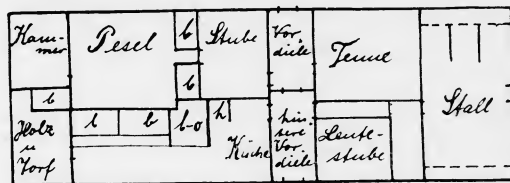 Kam-
mer
Pesel
b
Stube
b
Vor-
diele
Tenne
Stall
b
Holz
u
Torf
b
b
b-o
h
Küche
hin-
tere
Vor-
diele
Leute-
stube